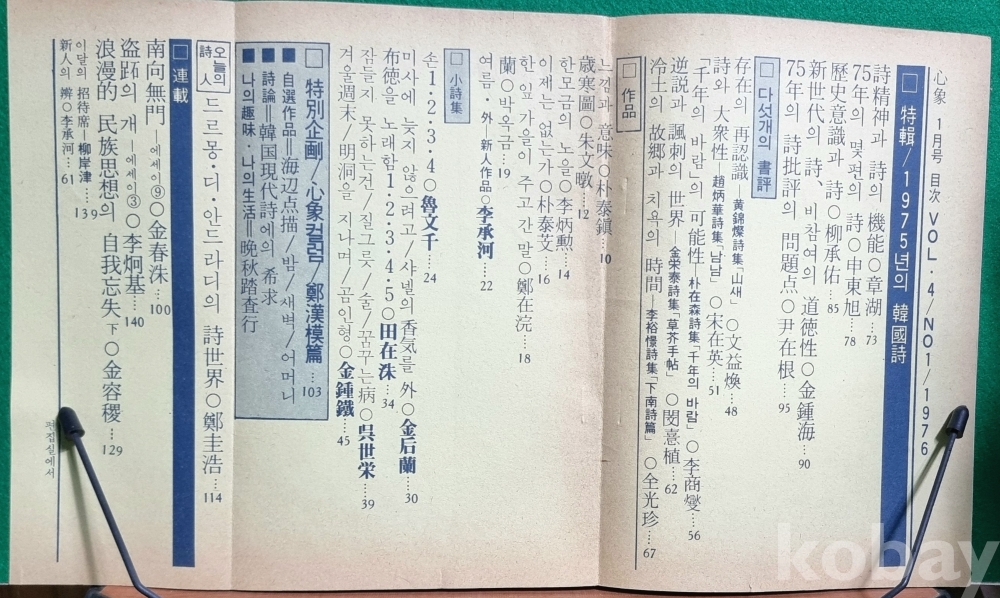 心象 1月号 目次 VOL.4/NO1/1976
□ 特輯/1975년의 韓國詩
詩精神과 詩의 機能○章湖…73
75年의 몇편의 詩○申東旭…78
歷史意識과 詩○柳承佑…85
新世代의 詩、비참여의 道徳性○金鍾海…90
75年의 詩批評의 問題点○尹在根…95
□ 다섯개의 書評
存在의 再認識―黃錦燦詩集「山새」○文益煥…48
詩와 大衆性 趙炳華詩集「남남」○宋在英…51
「千年의 바람」의 可能性―朴在森詩集「千年의 바람」○李商燮…56
逆説과 諷刺의 世界―金栄泰詩集「草芥手帖」○閔憙植…62
冷土의 故郷과 치욕의 時間―李裕憬詩集「下南詩篇」○全光珍…67
□ 作品
느낌과 意味○朴泰鎭…10
歳寒圖○朱文暾…12
한모금의 노을○李炳勲…14
이제는 없는가○朴泰芠…16
한 잎 가을이 주고 간 말○鄭在浣…18
蘭○박옥금…19
여름・外 新人作品○李承河…22
□ 小詩集
손1・2・3・4○魯文千…24
미사에 늦지 않으려고/샤넬의 香気를 外○金后蘭…30
布徳을 노래함1・2・3・4・5○田在洙…34
잠들지 못하는건/질그릇/술/꿈꾸는病○呉世栄…39
겨울週末/明洞을 지나며/곰인형○金鍾鐵…45
□ 特別企劃/心象컬럼/鄭漢模篇…103
■ 自選作品=海辺点描/밤/새벽/어머니
■ 詩論=韓国現代詩에의 希求
■ 나의趣味・나의生活=晩秋踏査行
오늘의 詩人 드르몽・디・안드라디의 詩世界○鄭圭浩…114
□ 連載
南向無門―에세이⑨○金春洙…100
盗跖의 개―에세이③○李炯基…140
浪漫的 民族思想의 自我忘失 下○金容稷…129
이달의 招待席―柳岸津…139
新人의 辨○李承河…61
편집실에서
kobay